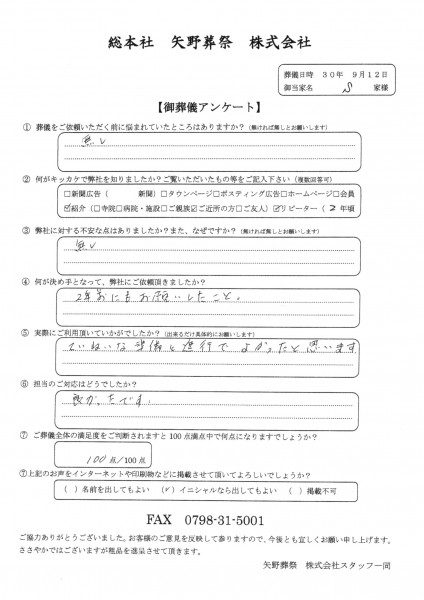 総本社　矢野葬祭　株式会社
葬儀日時　３０年　９月１２日
御当家名　S　家様
【御葬儀アンケート】
① 葬儀をご依頼いただく前に悩まれていたところはありますか？（無ければ無しとお願いします）
無し
② 何がキッカケで弊社を知りましたか？ご覧いただいたもの等をご記入下さい（複数回答可）
□新聞広告（　　　新聞）□タウンページ□ポスティング広告□ホームページ□会員
☑紹介（□寺院□病院・施設□ご親族☑ご近所の方□ご友人）☑リピーター（ 2 年頃
③ 弊社に対する不安な点はありましたか？また、なぜですか？（無ければ無しとお願いします）
無し
④ 何が決め手となって、弊社にご依頼頂きましたか？
2年前にもお願いしたこと。
⑤ 実際にご利用頂いていかがでしたか？（出来るだけ具体的にお願いします）
ていねいな準備と進行でよかったと思います
⑥ 担当のご対応はどうでしたか？
良かったです。
⑦ ご葬儀全体の満足度をご判断されますと100点満点中で何点になりますでしょうか？
100点/100点
⑦上記のお声をインターネットや印刷物などに掲載させて頂いてよろしいでしょうか？
（ ）名前を出してもよい　（✓）イニシャルなら出してもよい　（ ）掲載不可
FAX　0798-31-5001
ご協力ありがとうございました。お客様のご意見を反映して参りますので、今後とも宜しくお願い申し上げます。
ささやかではございますが粗品を進呈させて頂きます。
矢野葬祭　株式会社スタッフ一同